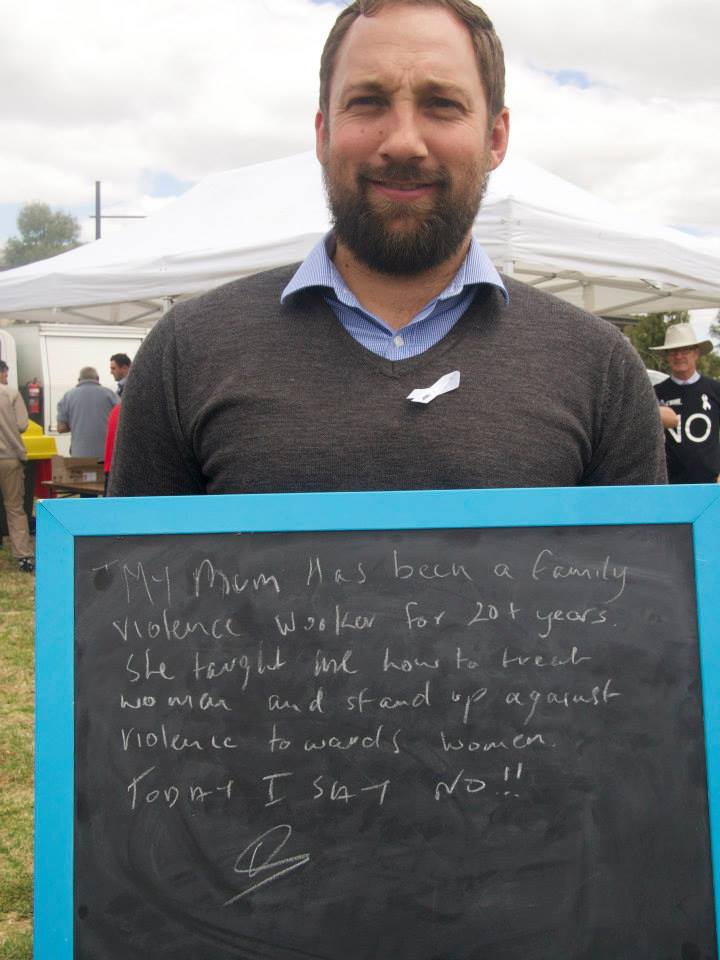 "My Mum Has been a family
violence worker for 20+ years.
She taught me how to treat
woman and stand up against
violence towards women.
TODAY I SAY NO!!
NO